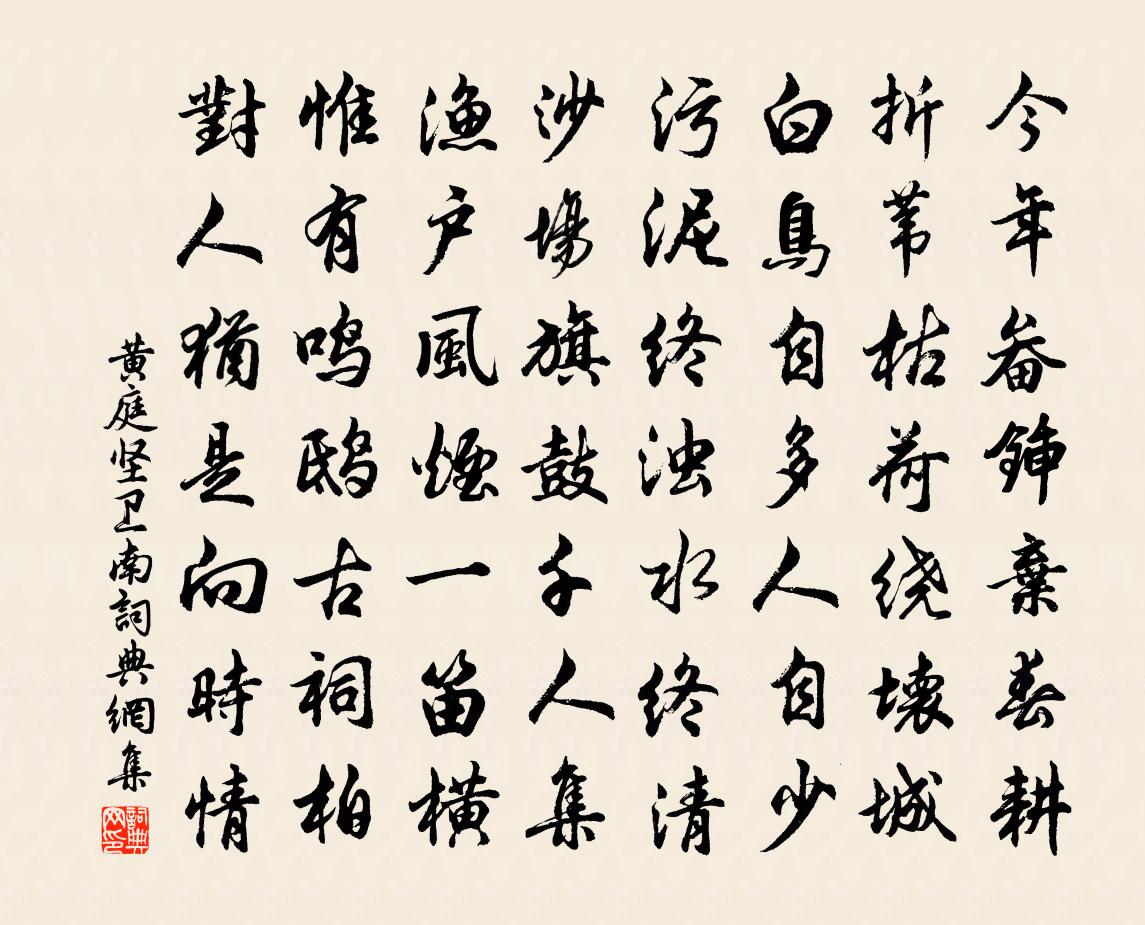 今年畚鍤棄春耕
折苇枯荷绕壊城
白鳥自多人自少
污泥终浊水终清
沙場旗鼓千人集
漁户風煙一笛横
惟有鸣鸱古祠柏
對人猶是向時情
黄庭坚卫南詞典網集
詞典网印